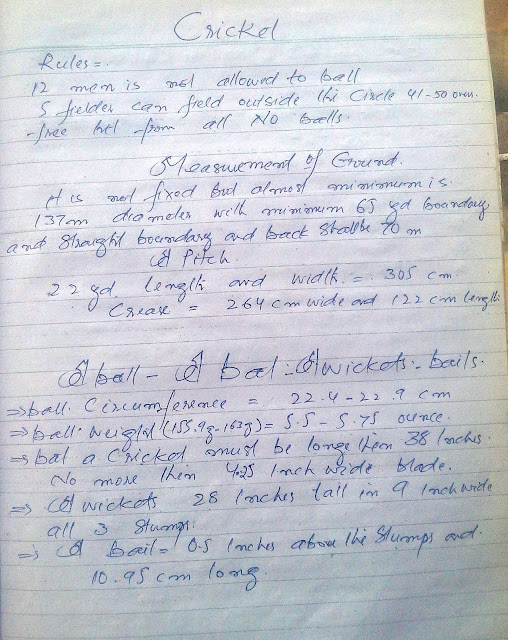 Cricket
Rules =
12 men is not allowed to ball
5 fielder can field outside the Circle 41-50 over.
-free hit -from all NO balls.
Measurement of Ground.
It is not fixed But almost minimum is
137m diameter with minimum 65 yd boundary,
and straight boundary and back shallbe 70 m
Pitch.
22 yd length and width = 305 cm
Crease = 264 cm wide and 122 cm length
ball - bat - wickets - bails.
⇒ ball. Circumference = 22.4 - 22.9 cm
⇒ ball. weight (155.9g - 163g) = 5.5 - 5.75 ounce.
⇒ bat a cricket must be longe then 38 Inches.
No more then 4.25 Inch wide blade.
⇒ wickets 28 Inches tall in 9 Inch wide
all 3 stumps.
⇒ bail = 0.5 Inches above the stumps and.
10.95 cm long.